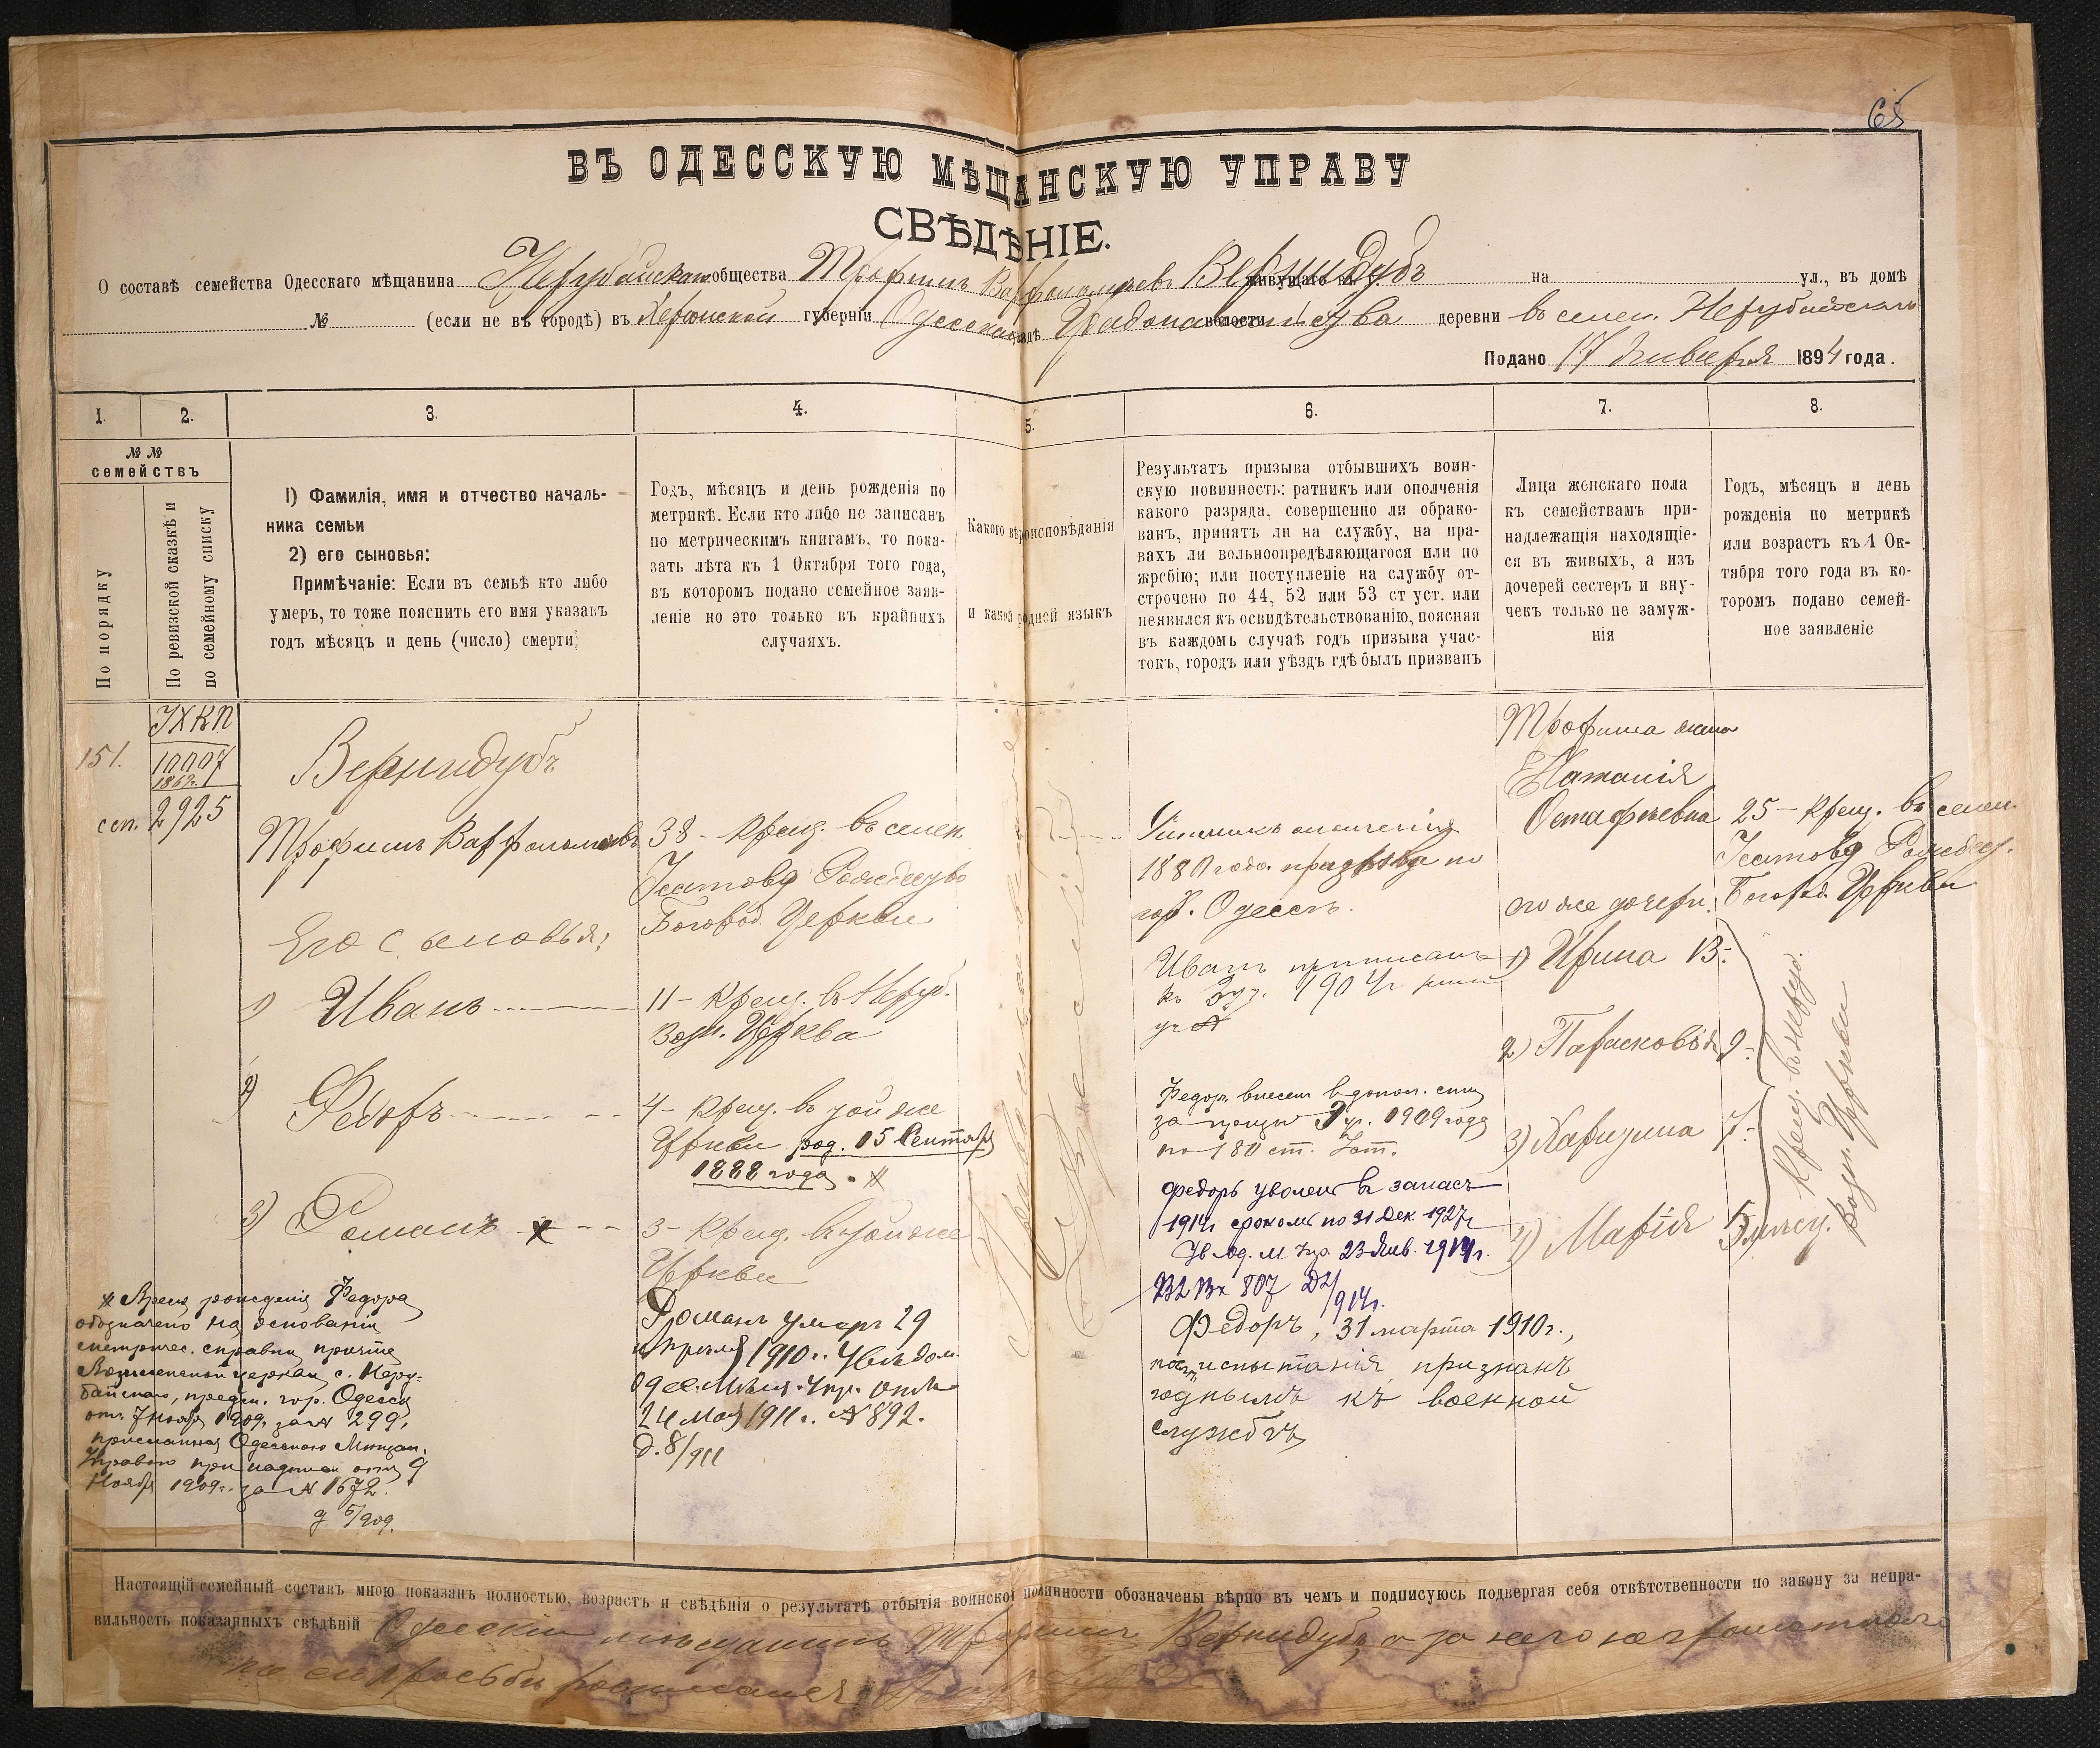 65
ВЪ ОДЕССКУЮ МѢЩАНСКУЮ УПРАВУ
СВѢДѢНІЕ.
О составѣ семейства Одесскаго мѣщанина Нерубайскаго общества Трофимъ Варфоломѣевъ Вернидубъ живущаго въ на ул., въ домѣ
№ (если не въ городѣ) въ Херсонской губерніи Одесскаго уѣздѣ волости деревни въ селен. Нерубайскомъ
Подано 17 Января 1894 года.
1. 2. 3. 4. 5. 6. 7. 8.
№ №
семействъ
По порядку
По ревизской сказкѣ и
по семейному списку
1) Фамилія, имя и отчество началь-
ника семьи
2) его сыновья:
Примѣчаніе: Если въ семьѣ кто либо
умеръ, то тоже пояснить его имя указавъ
годъ мѣсяцъ и день (число) смерти
Годъ, мѣсяцъ и день рожденія по
метрикѣ. Если кто либо не записанъ
по метрическимъ книгамъ, то пока-
зать лѣта къ 1 Октября того года,
въ которомъ подано семейное заяв-
леніе но это только въ крайнихъ
случаяхъ.
Какого вѣроисповѣданія
и какой родной языкъ
Результатъ призыва отбывшихъ воин-
скую повинность: ратникъ или ополченія
какого разряда, совершенно ли обрако-
ванъ, принятъ ли на службу, на пра-
вахъ ли вольноопредѣляющагося или по
жребію; или поступленіе на службу от-
строчено по 44, 52 или 53 ст уст. или
неявился къ освидѣтельствованію, поясняя
въ каждомъ случаѣ годъ призыва учас-
токъ, городъ или уѣздъ гдѣ былъ призванъ
Лица женскаго пола
къ семействамъ при-
надлежащія находящіе-
ся въ живыхъ, а изъ
дочерей сестеръ и вну-
чекъ только не замуж-
нія
Годъ, мѣсяцъ и день
рожденія по метрикѣ
или возрастъ къ 1 Ок-
тября того года въ ко-
торомъ подано семей-
ное заявленіе
151.
10007
сеп. 2925
Вернидубъ
Трофимъ Варфоломѣевъ
Его сыновья:
1) Иванъ
2) Федоръ
3) Романъ
38 - Крещ. въ селен.
Усатово Рождеств
Богород. Церкви
11 - Крещ. въ Неруб.
Возн. Церква
4 - Крещ. въ той же
Церкви род. 15 Сентября
1888 года.
3 - Крещ. въ той же
Церкви
Романъ умеръ 29
Апрѣля 1910 г. Увѣдом.
Одес. Мѣщ. Упр. отъ
24 Мая 1911 г. № 892.
д. 8/911
Православнаго
ополченія
1880 года призыва по
гор. Одессѣ.
Иванъ приписанъ
къ 3 уч. 1904 г.
Федоръ внесен в допол.
3 уч. 1909 года
по 180 ст. Уст.
Федоръ уволенъ въ запасъ
1914 г срокомъ по 31 Дек. 1927 г
Ув. Од. М Упр. 23 Янв. 1914 г.
Федоръ, 31 марта 1910 г.,
испытанія, признанъ
годнымъ къ военной
службѣ
Трофима жена
Наталія
Остафьевна
его же дочери:
1) Ирина
2) Парасковія
3) Харитина
4) Марія
25 - Крещ. въ селен.
Усатово Рождест.
Богород. Церкви
13 -
9 -
7 -
5 мѣсц.
Крещ. въ Неруб.
Возн. Церкви
Время рожденія Федора
обозначено на основаніи
метричес. справки причта
Вознесенской церкви с. Неру-
байскаго, предм. гор. Одессы
отъ 7 ноября 1909 г. за № 299,
присланной Одесскою Мѣщан.
Управою при надписи отъ 9
Ноября 1909 г. за № 1672.
д 5/909.
Настоящій семейный составъ мною показанъ полностью, возрастъ и свѣдѣнія о результатѣ отбытія воинской повинности обозначены вѣрно въ чемъ и подписуюсь подвергая себя отвѣтственности по закону за непра-
вильность показанныхъ свѣдѣній Одесскій мѣщанинъ Трофимъ Вернидубъ, а за него неграмотнаго
по его просьбѣ росписался